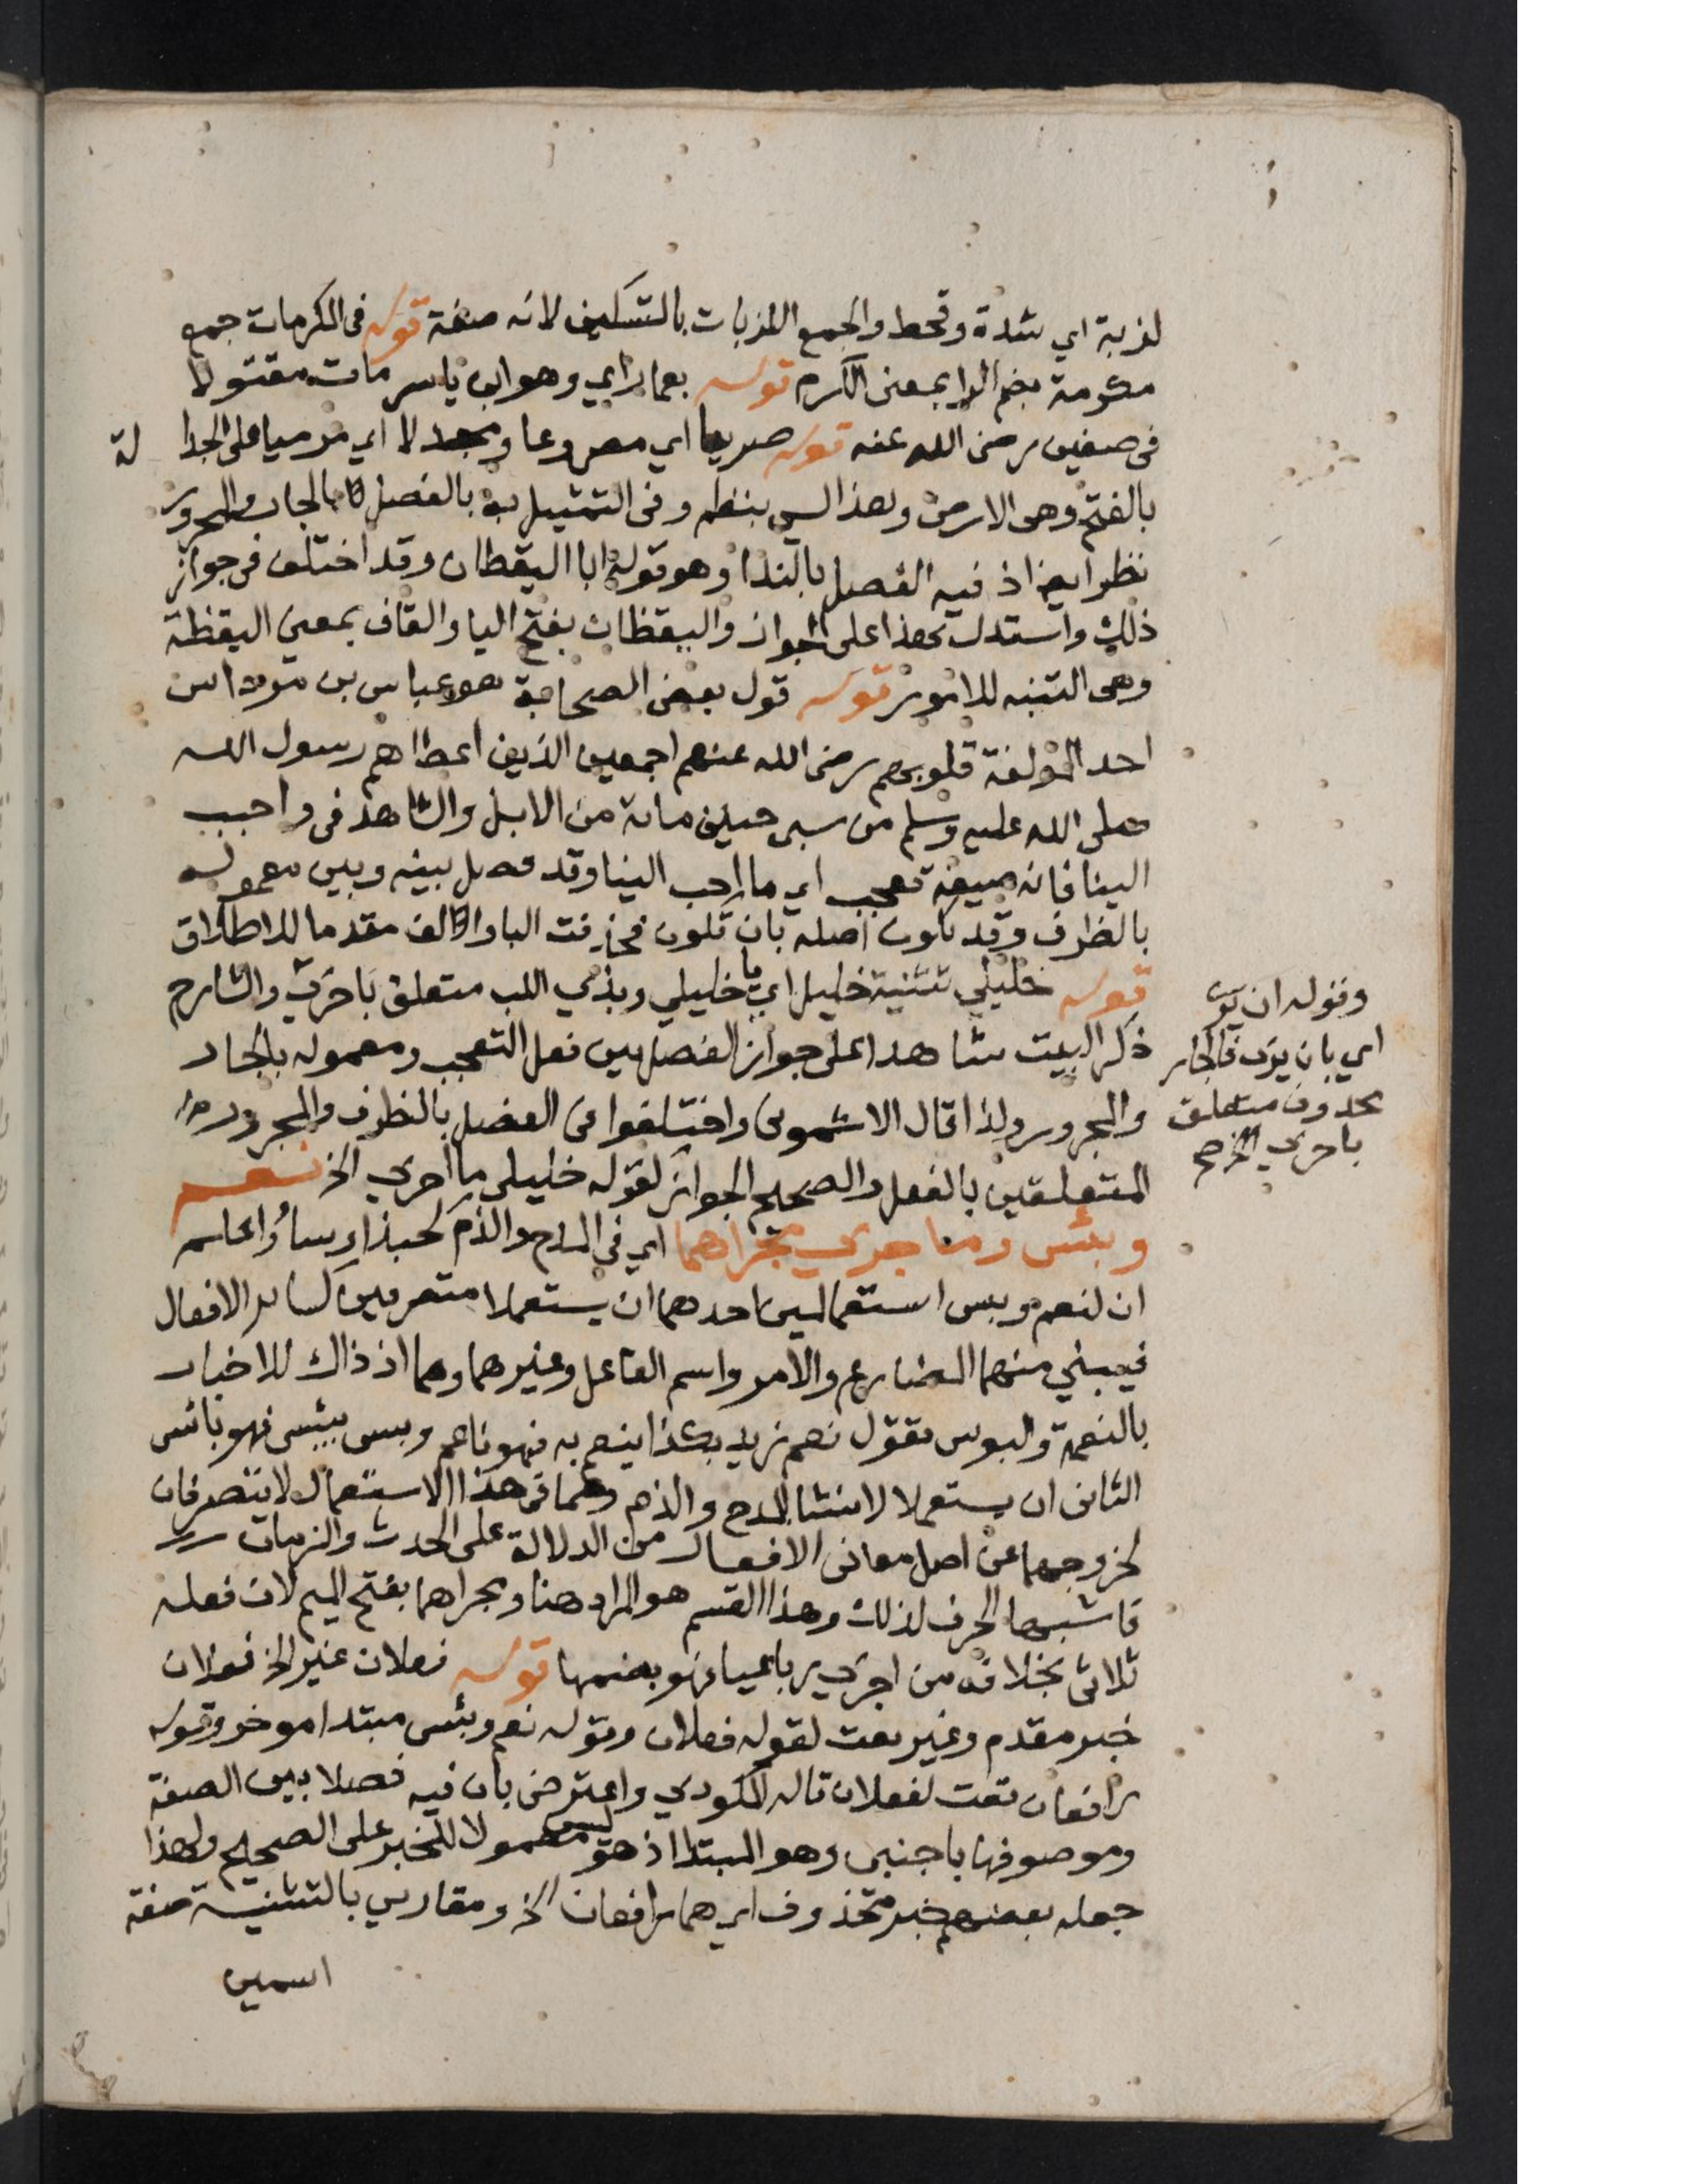 لزبة اي شدة وقحط والجمع اللزبات بالتسكين لانه صفة قوله في المكرمات جمع
مكرمة بضم الرا بمعنى الكرم قوله بعمار اي وهو ابن ياسر مات مقتولا
في صفين رضى الله عنه قوله صريعا اي مصروعا ومجدلا اي مرميا على الجدا لة
بالفتح وهى الارض وهذا ليس بنظم وفى التمثيل به بالفصل بالجار والمجرور
نظر ايضا اذ فيه الفصل بالندا وهو قوله ابا اليقظان وقد اختلف في جواز
ذلك واستدل بهذا على الجواز واليقظان بفتح اليا والقاف بمعنى اليقظة
وهى التنبه للامور قوله قول بعض الصحابة هو عباس بن مرداس
احد المؤلفة قلوبهم رضى الله عنهم اجمعين الذين اعطاهم رسول الله
صلى الله عليه وسلم من سبى حنين مائة من الابل والشاهد في واحبب
الينا فانه صيغة تعجب اي ما احب الينا وقد فصل بينه وبين معموله
بالظرف وقد تكون اصله بان تكون فحذفت البا والالف مقدما للاطلاق
قوله خليلي تثنية خليل اي يا خليلي وبذي اللب متعلق باحرى والشارح
ذكر البيت شاهدا على جواز الفصل بين فعل التعجب ومعموله بالجار
والمجرور ولذا قال الاشمونى واختلفوا فى الفصل بالظرف والمجرور
المتعلقين بالفعل والصحيح الجواز كقوله خليلي ما احرى الخ نعم
وبئس وما جرى مجراهما اي في المدح والذم كحبذا وساء واعلم
ان لنعم وبيس استعمالين احدهما ان يستعملا متصرفين كسائر الافعال
فيبني منهما المضارع والامر واسم الفاعل وغيرهما وهما اذ ذاك للاخبار
بالنعمة والبوس تقول نعم زيد بكذا ينعم به فهو ناعم وبيس يبئس فهو بائس
الثانى ان يستعملا لانشا المدح والذم وهما في هذا الاستعمال لا يتصرفان
لخروجهما عن اصل معانى الافعال من الدلالة على الحدث والزمان
فاشبها الحرف لذلك وهذا القسم هو المراد هنا ومجراهما بفتح الميم لان فعله
ثلاثى بخلافه من اجرى رباعيا فهو بضمها قوله فعلان غير الخ فعلان
خبر مقدم وغير نعت لقوله فعلان وقوله نعم وبئس مبتدا موخر وقوله
رافعان نعت لفعلان قاله المكودي واعترض بان فيه فصلا بين الصفة
وموصوفها باجنبى وهو المبتدا اذ هو ليس معمولا للخبر على الصحيح ولهذا
جعله بعضهم خبر محذوف اي هما رافعان الخ ومقارني بالتثنية صفة
اسمين
وقوله ان يرى
اي بان يرى فالجار
محذوف متعلق
باحرى الخ صح